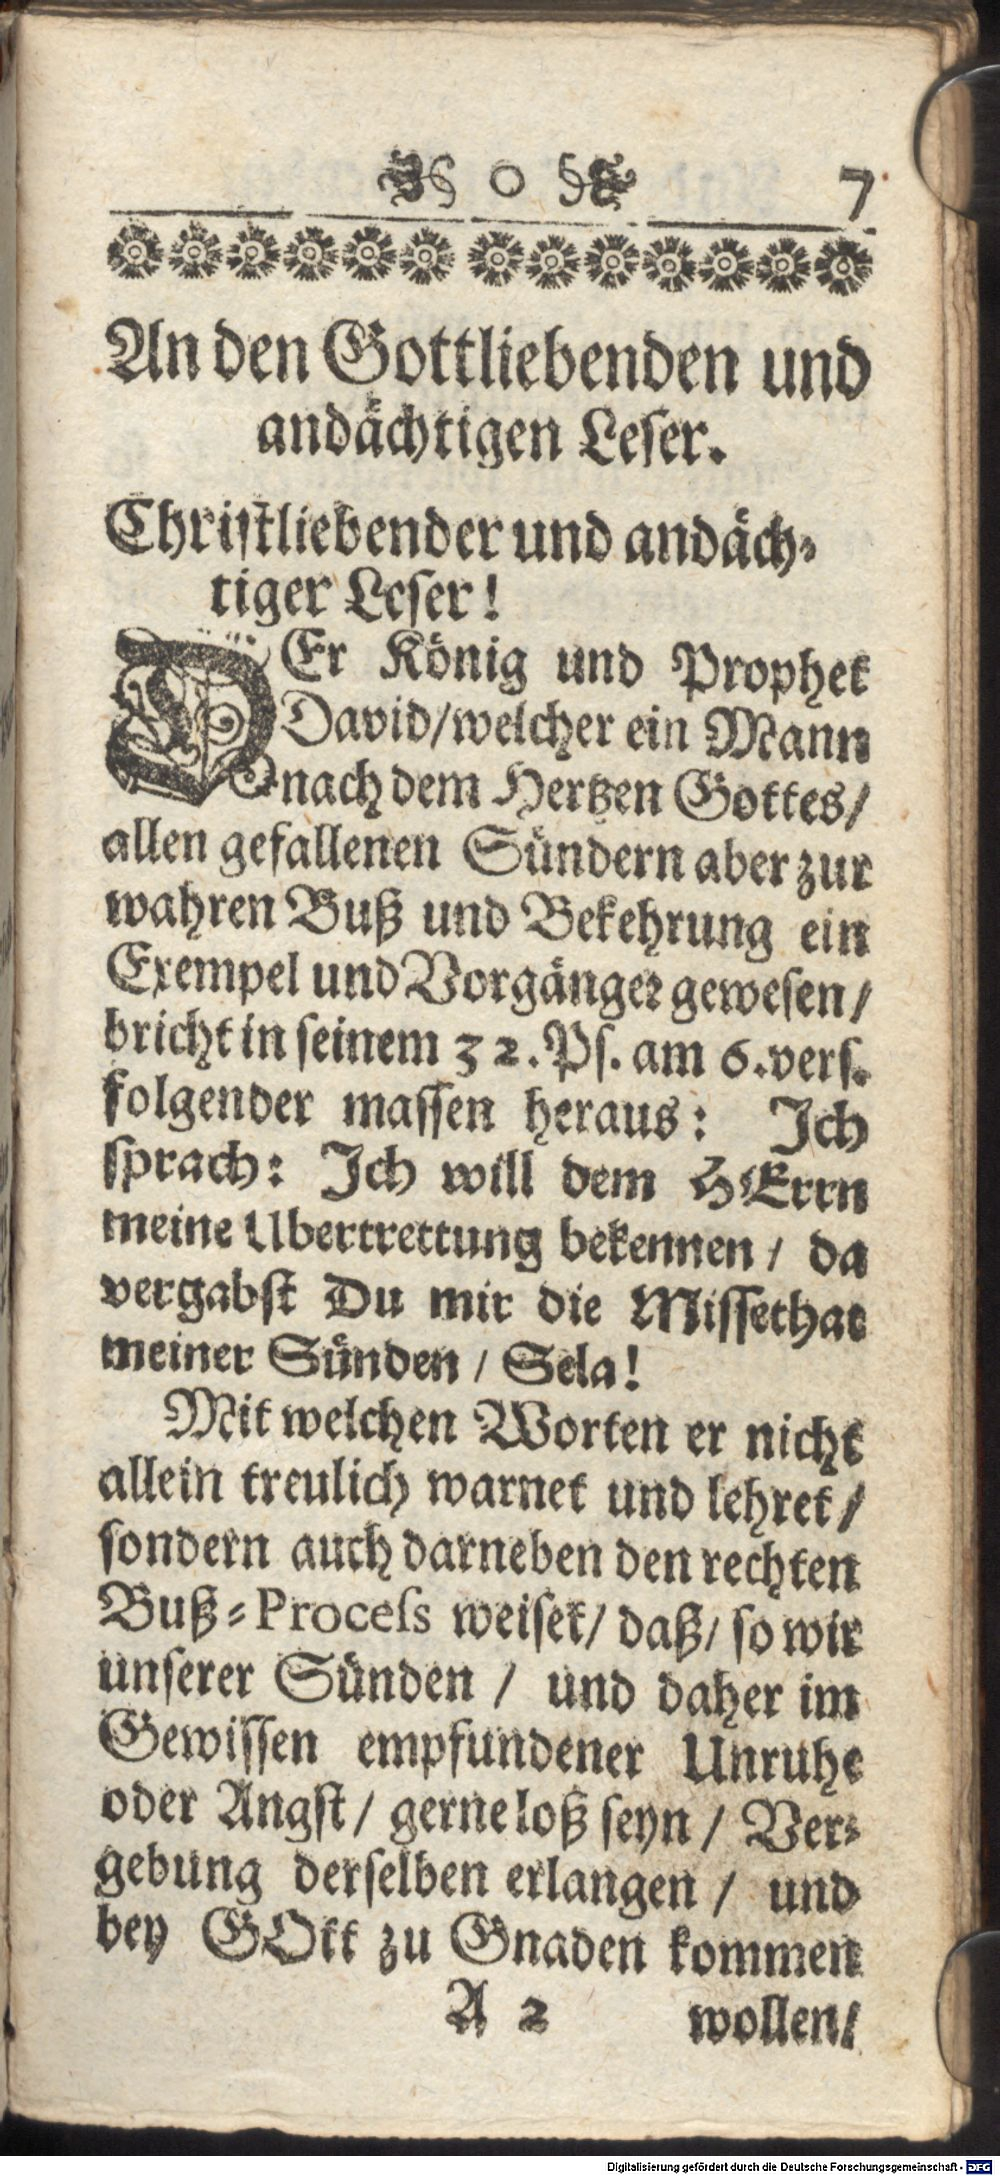 0 7
An den Gottliebenden und
andächtigen Leser.
Christliebender und andäch-
tiger Leser!
DEr König und Prophet
David/welcher ein Mann
nach dem Hertzen Gottes/
allen gefallenen Sündern aber zur
wahren Buß und Bekehrung ein
Exempel und Vorgänger gewesen/
bricht in seinem 32. Ps. am 6. vers.
folgender massen heraus: Ich
sprach: Ich will dem HErrn
meine Ubertrettung bekennen / da
vergabst Du mir die Missethat
meiner Sünden / Sela!
Mit welchen Worten er nicht
allein treulich warnet und lehret/
sondern auch darneben den rechten
Buß-Process weiset/ daß/ so wir
unserer Sünden / und daher im
Gewissen empfundener Unruhe
oder Angst/ gerne loß seyn / Ver-
gebung derselben erlangen / und
bey GOtt zu Gnaden kommen
A 2 wollen/
Digitalisierung gefördert durch die Deutsche Forschungsgemeinschaft - DFG